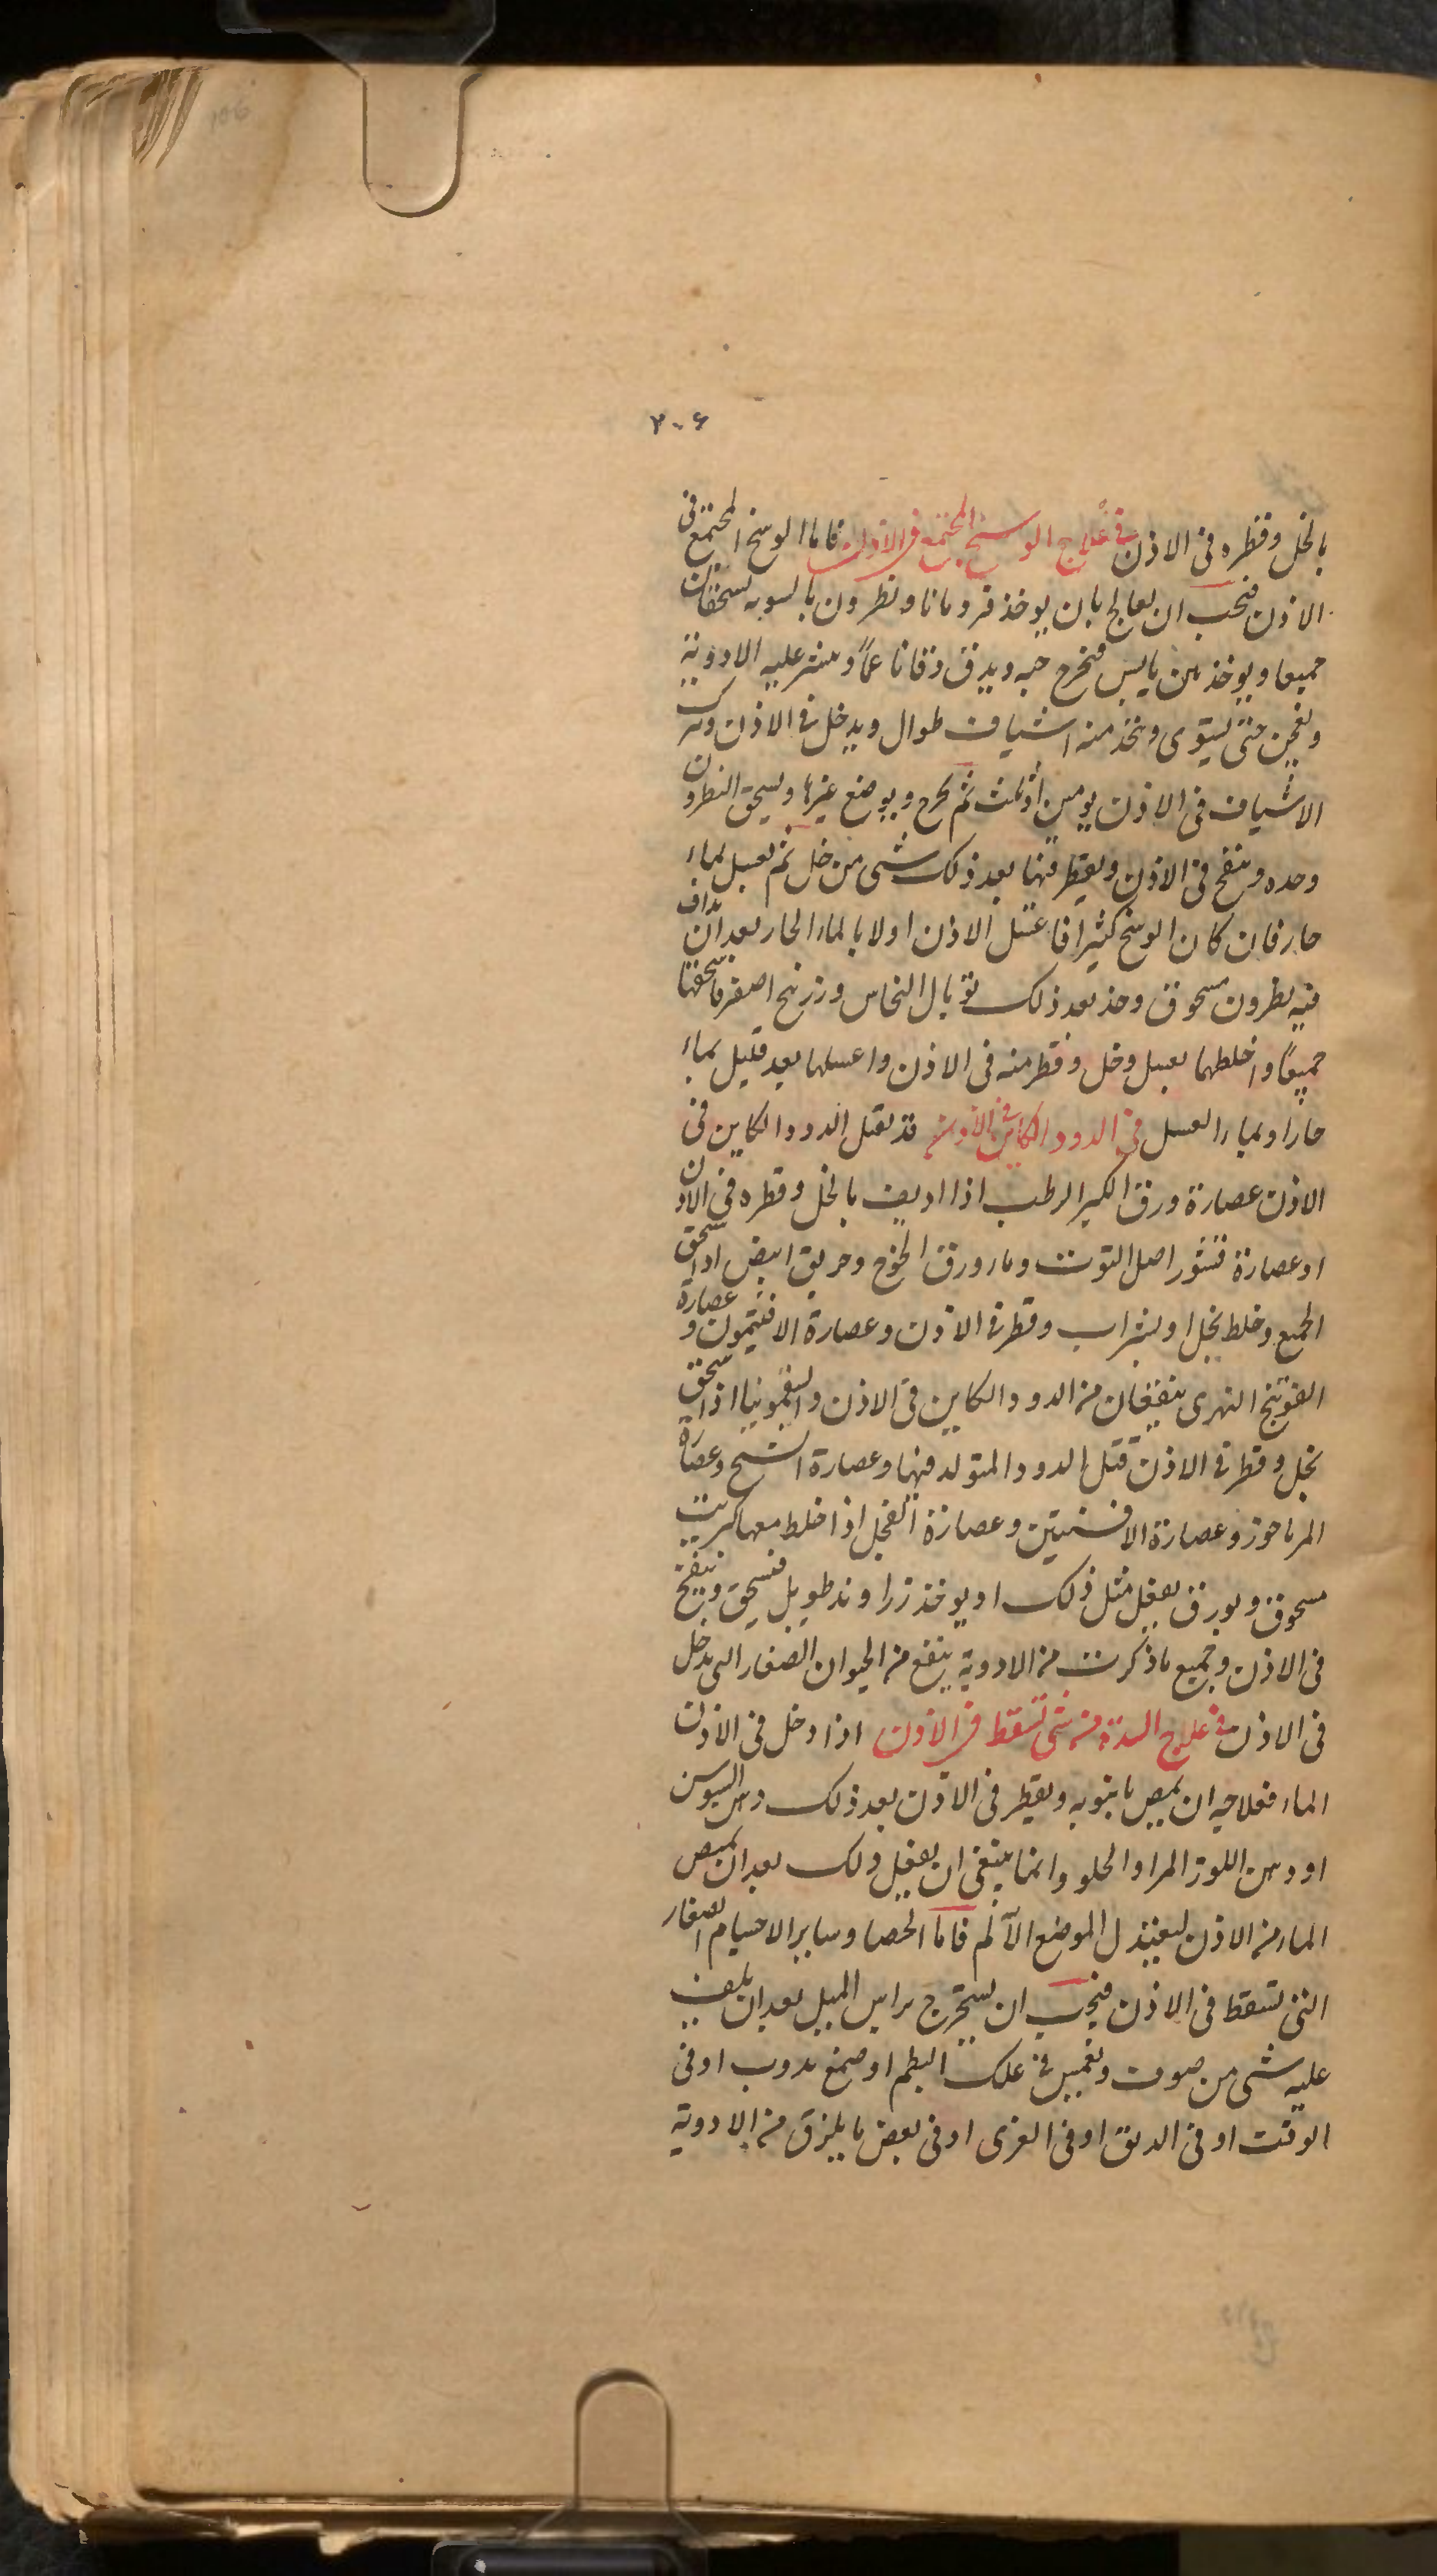 106
٢٠۶
بالخل وقطره فى الاذن فى علاج الوسخ المجتمع فى الاذن فاما الوسخ المجتمع فى
الاذن فيجب ان يعالج بان يوخذ قردمانا ونطرون بالسويه يسحقان
جميعا ويوخذ تين يابس فيخرج حبه ويدق دقا ناعماً وينثر عليه الادوية
ويعجن حتى يستوى ويتخذ منه اشياف طوال ويدخل فى الاذن ويترك
الاشياف فى الاذن يومين او ثلث ثم يخرج ويوضع غيرها ويسحق النطرون
وحده وينفخ فى الاذن ويقطر فيها بعد ذلك شى من خل ثم يغسل بماء
حار فان كان الوسخ كثيرا فاغسل الاذن اولا بالماء الحار بعد ان يداف
فيه نطرون مسحوق وخذ بعد ذلك توبال النحاس وزرنيخ اصفر فاسحقها
جميعاً واخلطهما بعسل وخل وقطر منه فى الاذن واغسلها بعد قليل بماء
حار او بماء العسل فى الدود الكاين فى الاذن قد يقتل الدود الكاين فى
الاذن عصارة ورق الكبر الرطب اذا اديف بالخل وقطره فى الاذن
او عصارة قشور اصل التوت وماء ورق الخوخ وخربق ابيض اذا سحق
الجميع وخلط بخل او بشراب وقطر فى الاذن وعصارة الافتيمون وعصارة
الفوتنج النهرى ينفعان من الدود الكاين فى الاذن والسقمونيا اذا سحق
بخل وقطر فى الاذن قتل الدود المتولد فيها وعصارة الشيح وعصارة
المرماحوز وعصارة الافسنتين وعصارة الفجل اذا خلط معها كبريت
مسحوق وبورق يفعل مثل ذلك او يوخذ زراوند طويل فيسحق وينفخ
فى الاذن وجميع ما ذكرت من الادوية ينفع من الحيوان الصغار التى تدخل
فى الاذن فى علاج السدة من شى تسقط فى الاذن اذا دخل فى الاذن
الماء فعلاجه ان يمص بانبوبه ويقطر فى الاذن بعد ذلك دهن السوسن
او دهن اللوز المر او الحلو وانما ينبغى ان يفعل ذلك بعد ان يمص
الماء من الاذن ليعتدل الموضع الآلم فاما الحصا وساير الاجسام الصغار
التى تسقط فى الاذن فيجب ان يستخرج براس الميل بعد ان يلف
عليه شى من صوف ويغمس فى علك البطم او صمغ يدوب او فى
الوقت او فى الدبق او فى الغرى او فى بعض ما يلزق من الادوية